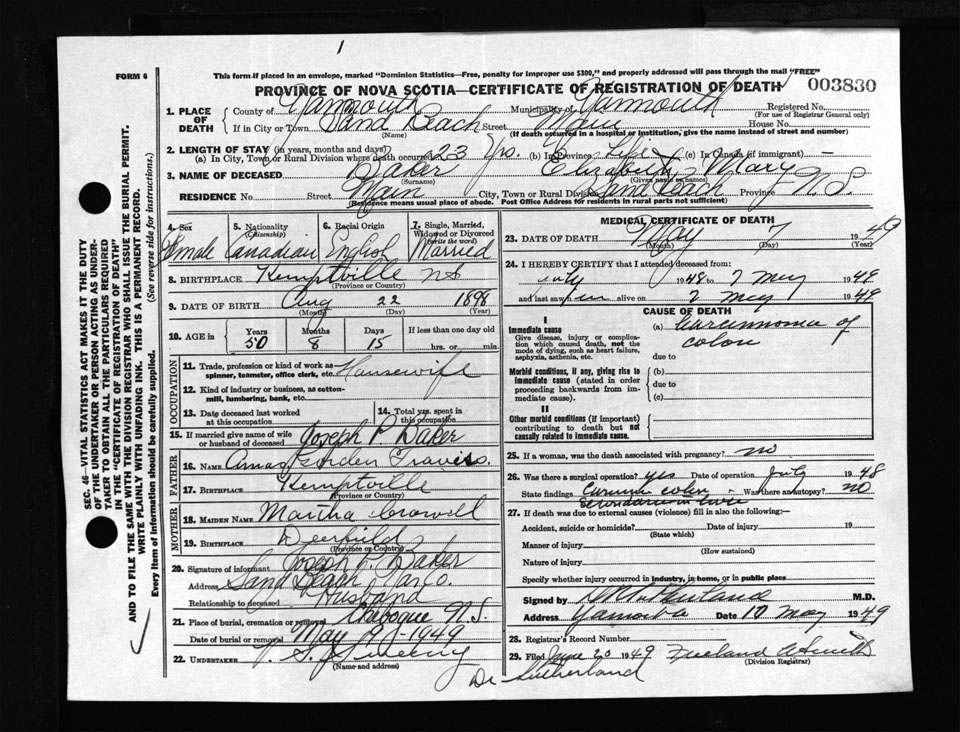 1
FORM 6
This form if placed in an envelope, marked "Dominion Statistics—Free, penalty for improper use $300," and properly addressed will pass through the mail "FREE"
PROVINCE OF NOVA SCOTIA—CERTIFICATE OF REGISTRATION OF DEATH
003830
1. PLACE OF DEATH
County of Yarmouth Municipality of Yarmouth Registered No.
(For use of Registrar General only)
If in City or Town Sand Beach Street Main House No.
(Name) (If death occurred in a hospital or institution, give the name instead of street and number)
2. LENGTH OF STAY (in years, months and days)
(a) In City, Town or Rural Division where death occurred 23 yrs. (b) In Province Life (c) In Canada (if immigrant) —
3. NAME OF DECEASED Baker Elizabeth Mary
(Surname) (Given name or names)
RESIDENCE No. Street Main City, Town or Rural Division Sand Beach Province N.S.
(Residence means usual place of abode. Post Office Address for residents in rural parts not sufficient)
4. Sex
Female
5. Nationality
(Citizenship)
Canadian
6. Racial Origin
English
7. Single, Married, Widowed or Divorced
(write the word)
Married
8. BIRTHPLACE Kemptville NS
(Province or Country)
9. DATE OF BIRTH Aug 22 1898
(Month) (Day) (Year)
10. AGE in
Years Months Days If less than one day old
50 8 15 hrs. or min.
OCCUPATION
11. Trade, profession or kind of work as spinner, teamster, office clerk, etc. Housewife
12. Kind of industry or business, as cotton-mill, lumbering, bank, etc.
13. Date deceased last worked at this occupation
14. Total yrs. spent in this occupation
15. If married give name of wife or husband of deceased Joseph P. Baker
FATHER
16. NAME Amas Gorden Travis.
17. BIRTHPLACE Kemptville
(Province or Country)
MOTHER
18. MAIDEN NAME Martha Crowell
19. BIRTHPLACE Deerfield
(Province or Country)
20. Signature of informant Joseph P. Baker
Address Sand Beach Yar Co.
Relationship to deceased Husband
21. Place of burial, cremation or removal Chebogue N.S.
Date of burial or removal May 9 - 1949
22. UNDERTAKER V. S. Sweeny
(Name and address)
Dr Sutherland
MEDICAL CERTIFICATE OF DEATH
23. DATE OF DEATH May 7 1949
(Month) (Day) (Year)
24. I HEREBY CERTIFY that I attended deceased from:
July 1948 to 7 May 1949
and last saw alive on 7 May 1949
CAUSE OF DEATH
I
Immediate cause
Give disease, injury or complication which caused death, not the mode of dying, such as heart failure, asphyxia, asthenia, etc.
(a) Carcinoma of colon
due to
Morbid conditions, if any, giving rise to immediate cause (stated in order proceeding backwards from immediate cause).
(b)
due to
(c)
II
Other morbid conditions (if important) contributing to death but not causally related to immediate cause.
25. If a woman, was the death associated with pregnancy? no
26. Was there a surgical operation? yes Date of operation July 1948
State findings colon Was there an autopsy? NO
27. If death was due to external causes (violence) fill in also the following:—
Accident, suicide or homicide? Date of injury 19
(State which)
Manner of injury
(How sustained)
Nature of injury
Specify whether injury occurred in industry, in home, or in public place
Signed by Sutherland M.D.
Address Date 17 May 1949
28. Registrar's Record Number
29. Filed June 20 1949
(Division Registrar)
SEC. 46—VITAL STATISTICS ACT MAKES IT THE DUTY
OF THE UNDERTAKER OR PERSON ACTING AS UNDER-
TAKER TO OBTAIN ALL THE PARTICULARS REQUIRED
IN THE "CERTIFICATE OF REGISTRATION OF DEATH"
AND TO FILE THE SAME WITH THE DIVISION REGISTRAR WHO SHALL ISSUE THE BURIAL PERMIT.
WRITE PLAINLY WITH UNFADING INK. THIS IS A PERMANENT RECORD.
Every item of information should be carefully supplied. (See reverse side for instructions.)